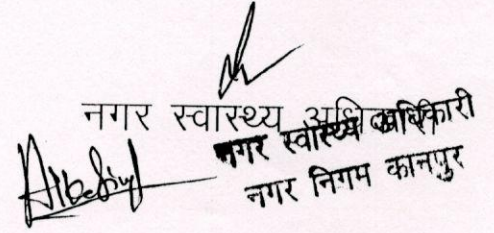 नगर स्वास्थ्य अधिकारी
नगर स्वास्थ्य अधिकारी
नगर निगम कानपुर